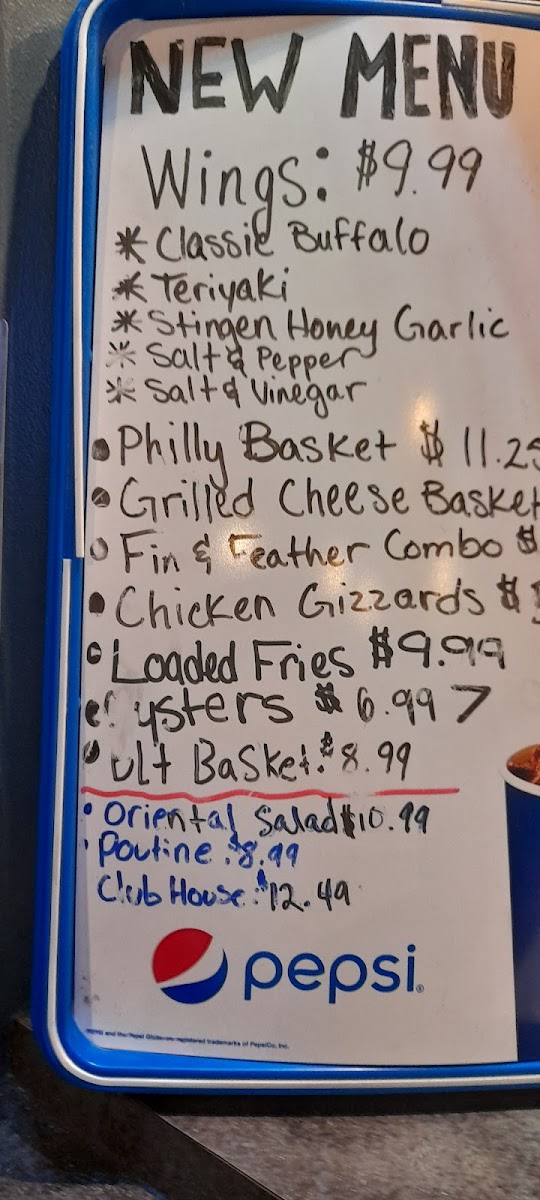 NEW MENU
Wings: $9.99
* Classic Buffalo
* Teriyaki
* Stingen Honey Garlic
* Salt & Pepper
* Salt & Vinegar
• Philly Basket $11.25
• Grilled Cheese Basket
• Fin & Feather Combo $
• Chicken Gizzards $
• Loaded Fries $9.99
ysters $6.99 7
• ult Basket: $8.99
• Oriental Salad $10.99
• Poutine: $8.99
Club House: $12.49
pepsi
PEPSI and the Pepsi Globe are registered trademarks of PepsiCo, Inc.